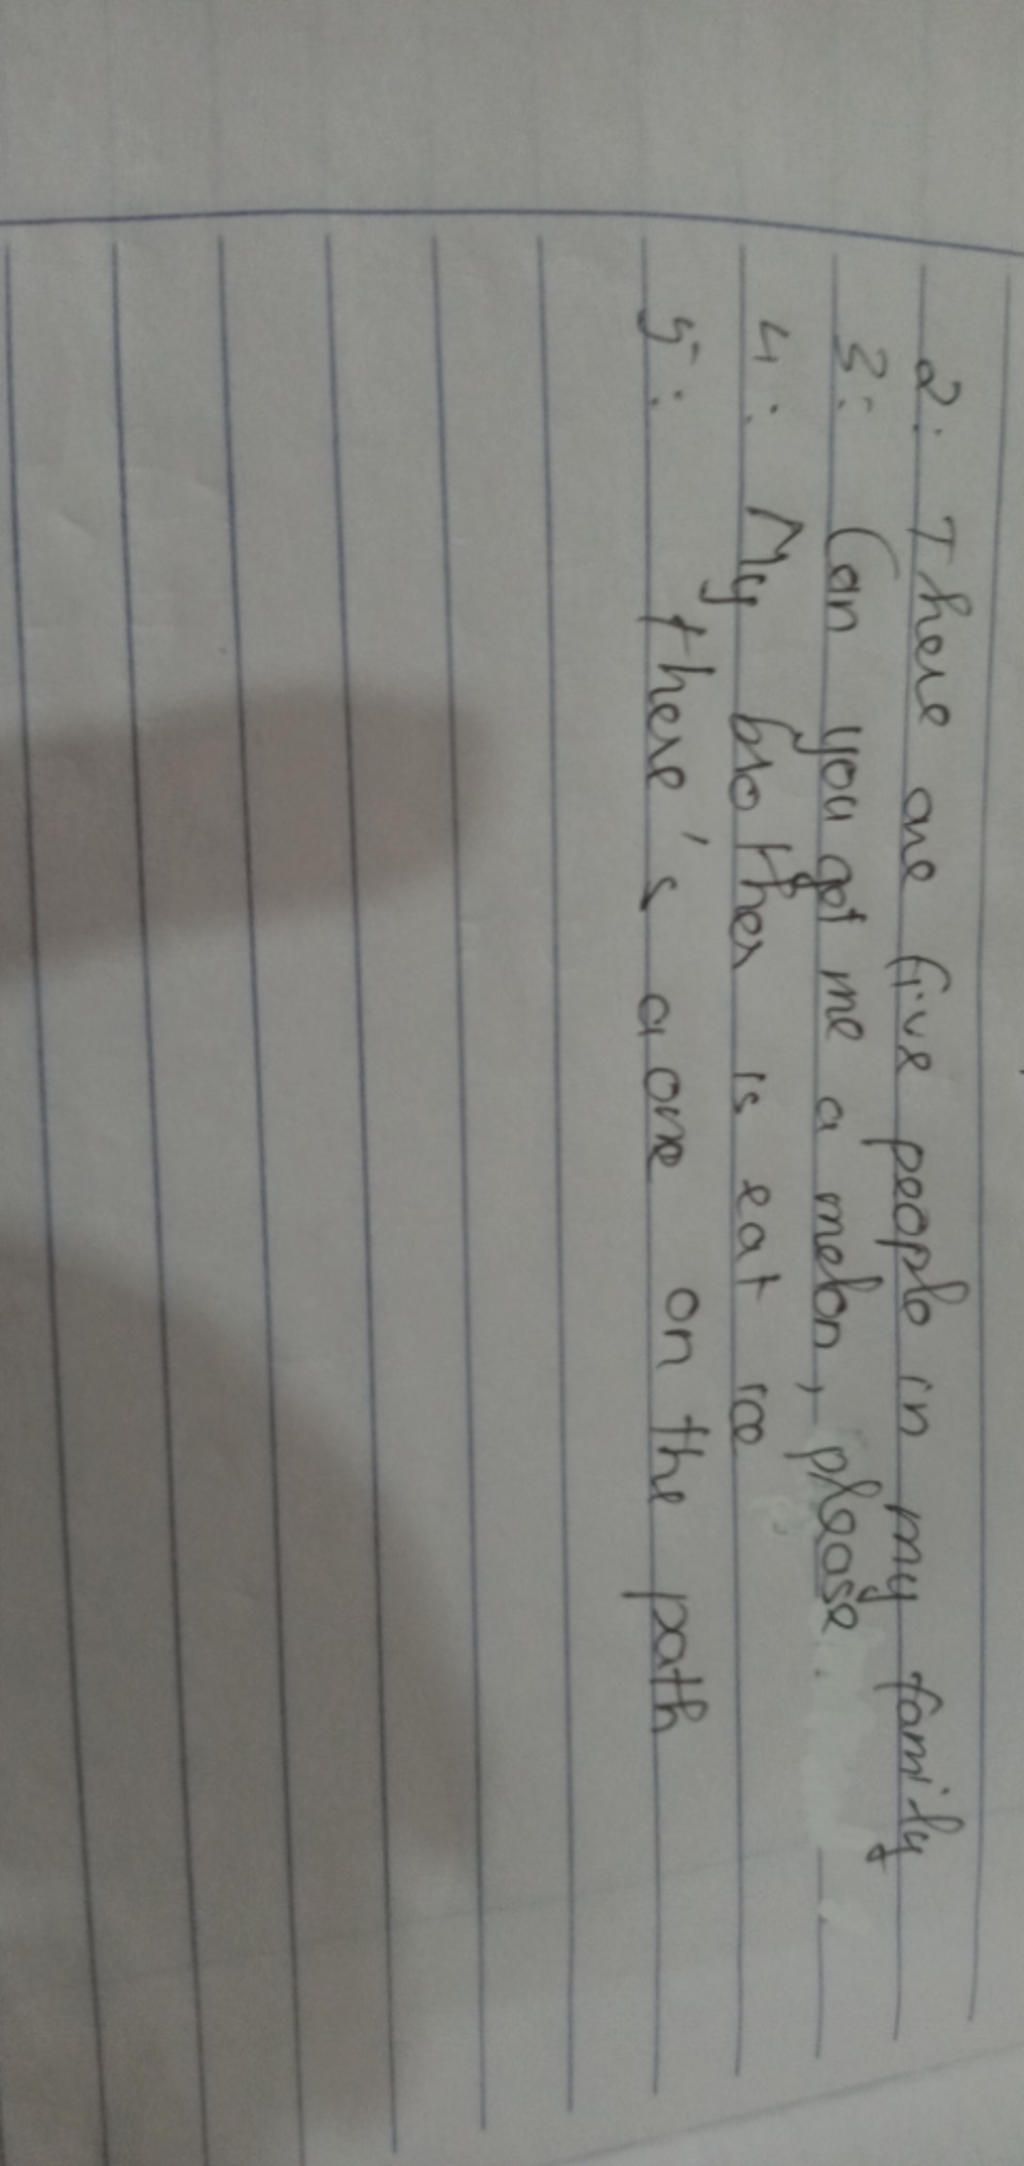 2: There are five people in my family
3: Can you get me a melon, please.
4: My brother is eat ice
5: there's a one on the path